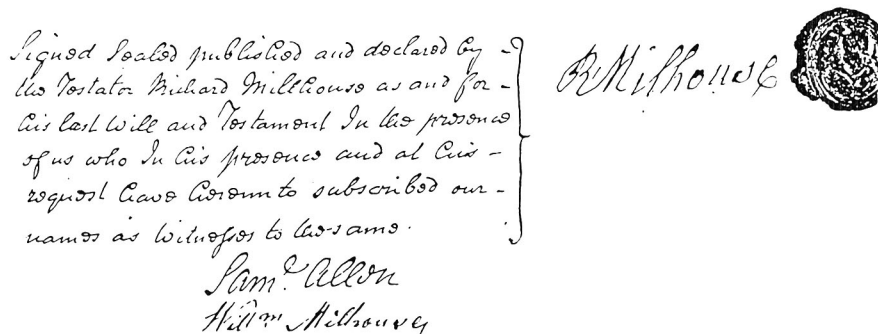 Signed Sealed published and declared by -
the Testator Richard Millhouse as and for -
his last Will and Testament In the presence
of us who In his presence and at his -
request have hereunto subscribed our -
names as Witnesses to the same.
R Milhouse
Saml. Allen
Willm Milhouse